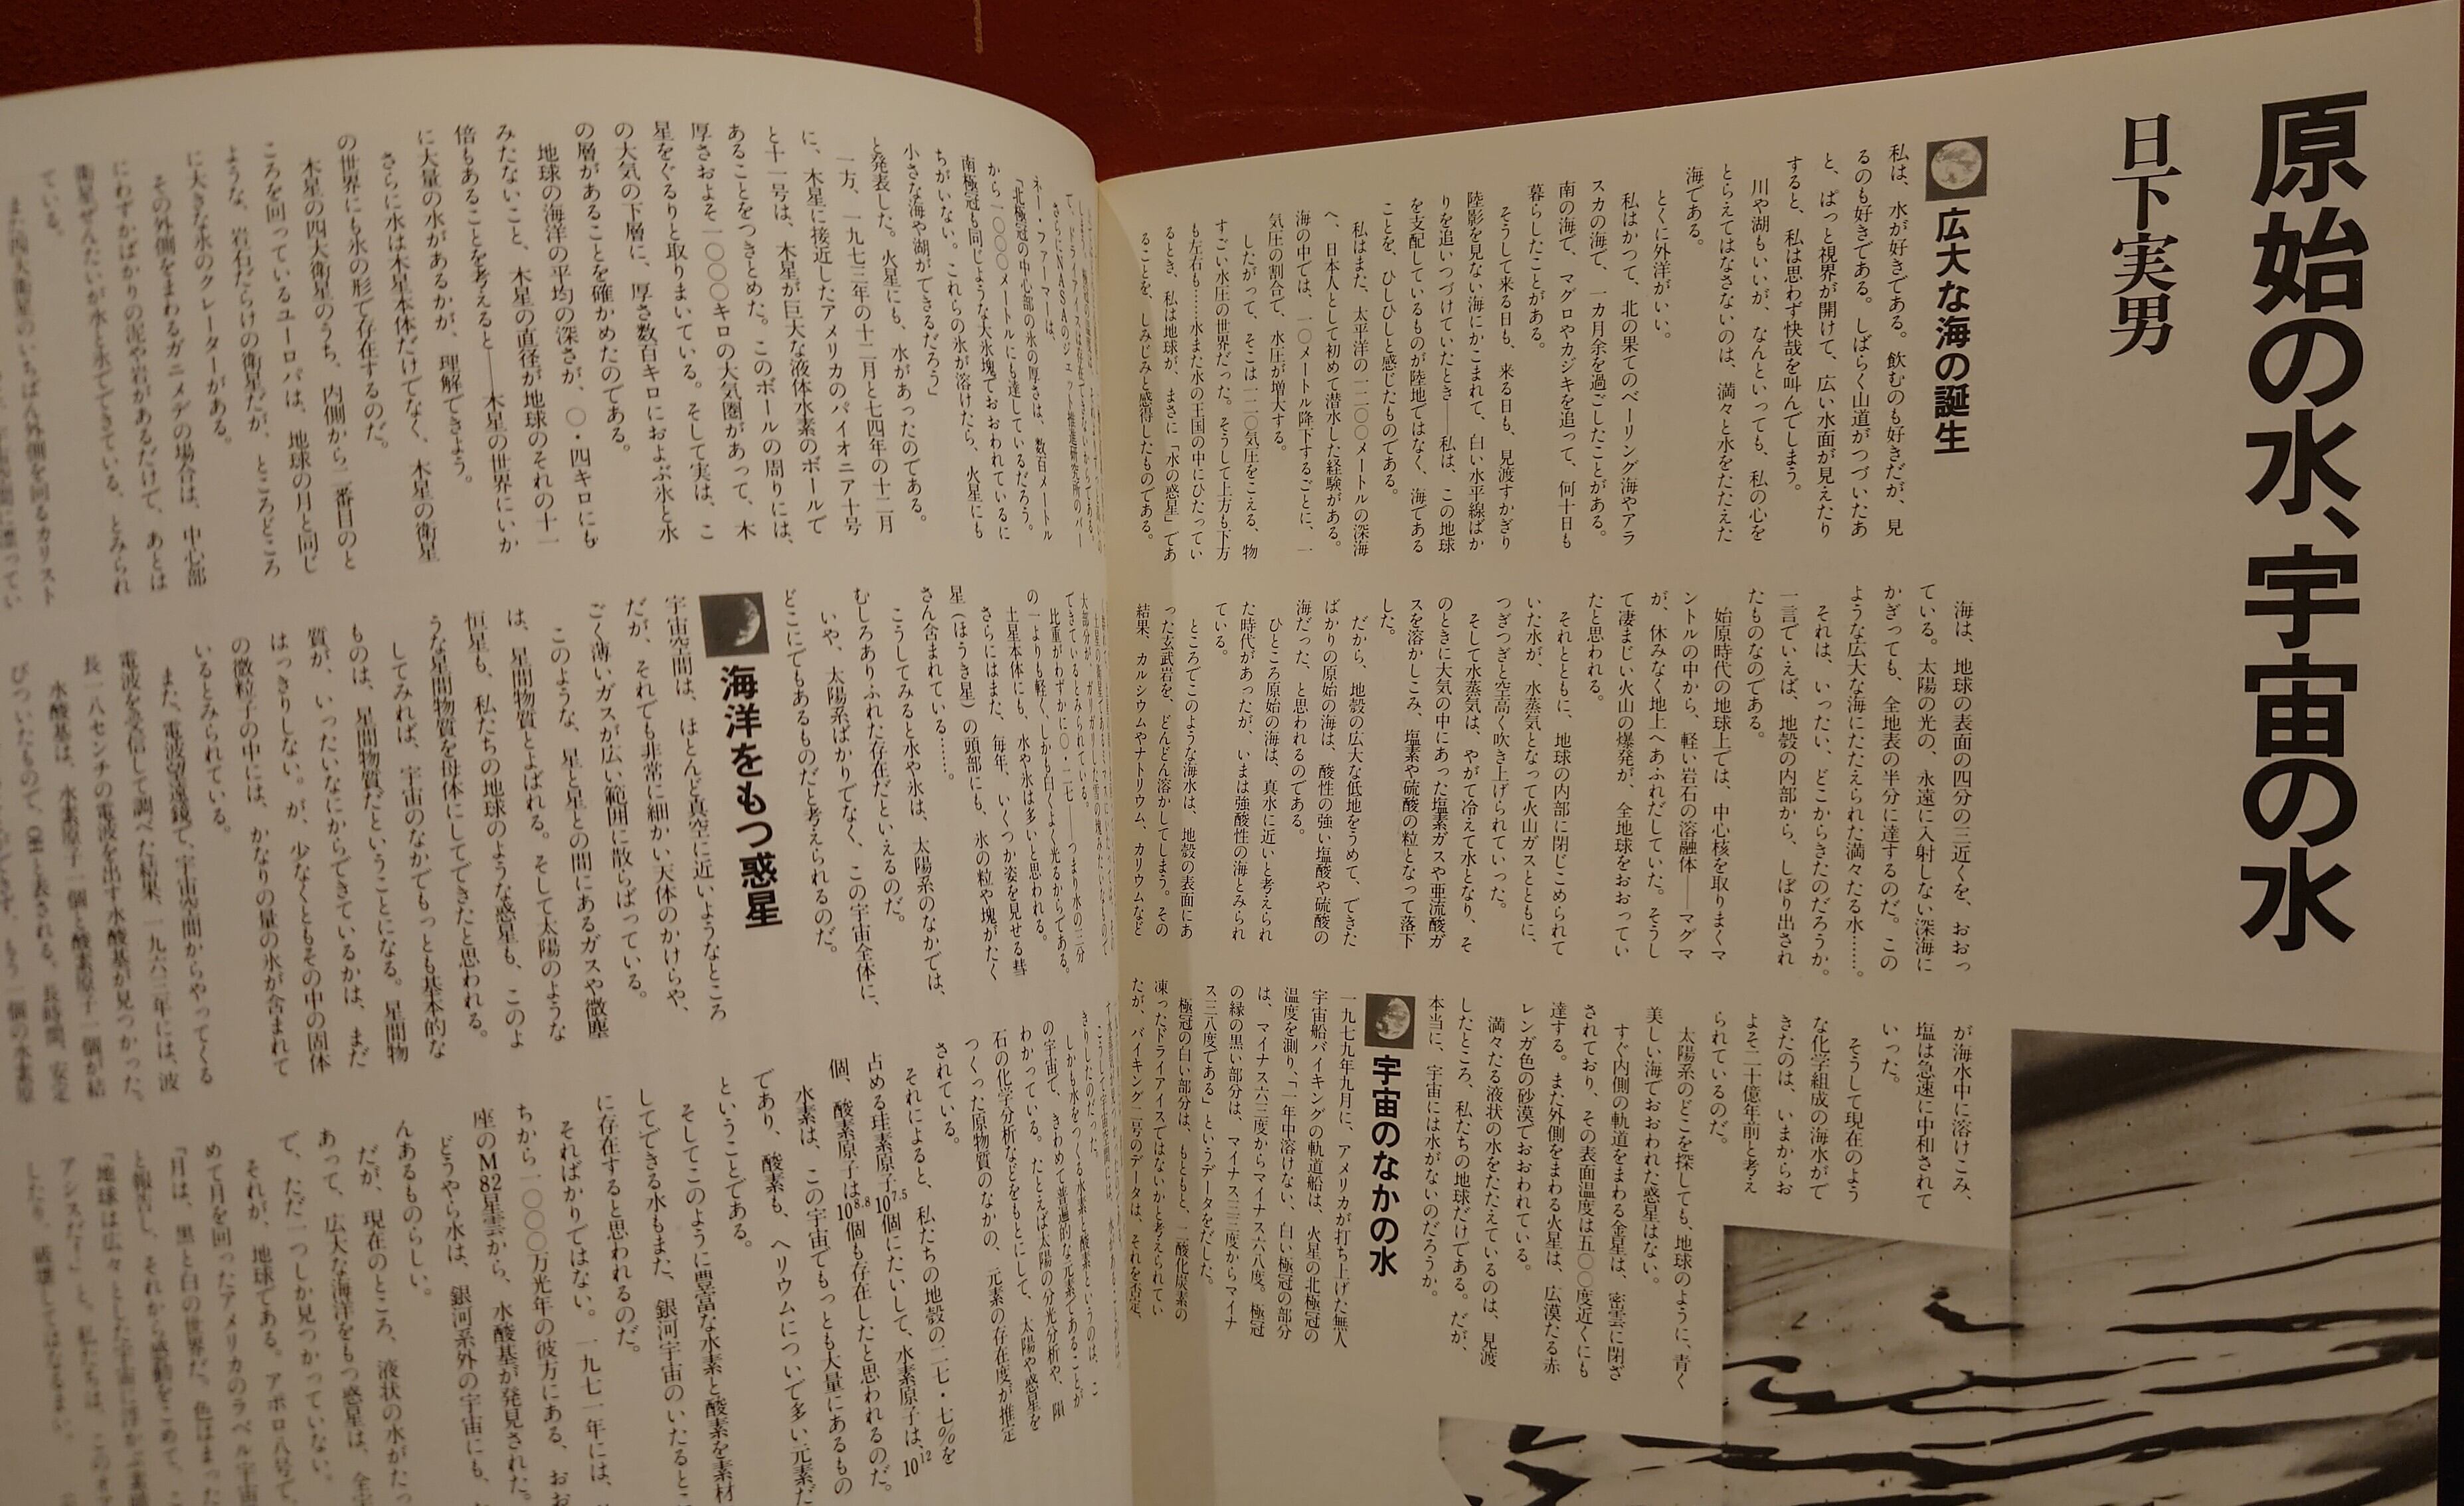 原始の水、宇宙の水
日下実男
広大な海の誕生
私は、水が好きである。飲むのも好きだが、見
るのも好きである。しばらく山道がつづいたあ
と、ぱっと視界が開けて、広い水面が見えたり
すると、私は思わず快哉を叫んでしまう。
川や湖もいいが、なんといっても、私の心を
とらえてはなさないのは、満々と水をたたえた
海である。
とくに外洋がいい。
私はかつて、北の果てのベーリング海やアラ
スカの海で、一カ月余を過ごしたことがある。
南の海で、マグロやカジキを追って、何十日も
暮らしたことがある。
そうして来る日も、来る日も、見渡すかぎり
陸影を見ない海にかこまれて、白い水平線ばか
りを追いつづけていたとき——私は、この地球
を支配しているものが陸地ではなく、海である
ことを、ひしひしと感じたものである。
私はまた、太平洋の一二〇〇メートルの深海
へ、日本人として初めて潜水した経験がある。
海の中では、一〇メートル降下するごとに、一
気圧の割合で、水圧が増大する。
したがって、そこは一二〇気圧をこえる、物
すごい水圧の世界だった。そうして上方も下方
も左右も……水また水の王国の中にひたってい
るとき、私は地球が、まさに「水の惑星」であ
ることを、しみじみと感得したものである。
海は、地球の表面の四分の三近くを、おおっ
ている。太陽の光の、永遠に入射しない深海に
かぎっても、全地表の半分に達するのだ。この
ような広大な海にたたえられた満々たる水……。
それは、いったい、どこからきたのだろうか。
一言でいえば、地殻の内部から、しぼり出され
たものなのである。
始原時代の地球上では、中心核を取りまくマ
ントルの中から、軽い岩石の溶融体——マグマ
が、休みなく地上へあふれだしていた。そうし
て凄まじい火山の爆発が、全地球をおおってい
たと思われる。
それとともに、地球の内部に閉じこめられて
いた水が、水蒸気となって火山ガスとともに、
つぎつぎと空高く吹き上げられていった。
そして水蒸気は、やがて冷えて水となり、そ
のときに大気の中にあった塩素ガスや亜流酸ガ
スを溶かしこみ、塩素や硫酸の粒となって落下
した。
だから、地殻の広大な低地をうめて、できた
ばかりの原始の海は、酸性の強い塩酸や硫酸の
海だった、と思われるのである。
ひところ原始の海は、真水に近いと考えられ
た時代があったが、いまは強酸性の海とみられ
ている。
ところでこのような海水は、地殻の表面にあ
った玄武岩を、どんどん溶かしてしまう。その
結果、カルシウムやナトリウム、カリウムなど
が海水中に溶けこみ、
塩は急速に中和されて
いった。
そうして現在のよう
な化学組成の海水がで
きたのは、いまからお
よそ二十億年前と考え
られているのだ。
太陽系のどこを探しても、地球のように、青く
美しい海でおおわれた惑星はない。
すぐ内側の軌道をまわる金星は、密雲に閉ざ
されており、その表面温度は五〇〇度近くにも
達する。また外側をまわる火星は、広漠たる赤
レンガ色の砂漠でおおわれている。
満々たる液状の水をたたえているのは、見渡
したところ、私たちの地球だけである。だが、
本当に、宇宙には水がないのだろうか。
宇宙のなかの水
一九七九年九月に、アメリカが打ち上げた無人
宇宙船バイキングの軌道船は、火星の北極冠の
温度を測り、「一年中溶けない、白い極冠の部分
は、マイナス六三度からマイナス六八度。極冠
の縁の黒い部分は、マイナス三三度からマイナ
ス三八度である」というデータをだした。
極冠の白い部分は、もともと、二酸化炭素の
凍ったドライアイスではないかと考えられてい
たが、バイキング二号のデータは、それを否定、
さらにNASAのジェット推進研究所のバー
ネー・ファーマーは、
「北極冠の中心部の氷の厚さは、数百メートル
から一〇〇〇メートルにも達しているだろう。
南極冠も同じような大氷塊でおおわれているに
ちがいない。これらの氷が溶けたら、火星にも
小さな海や湖ができるだろう」
と発表した。火星にも、水があったのである。
一方、一九七三年の十二月と七四年の十二月
に、木星に接近したアメリカのパイオニア十号
と十一号は、木星が巨大な液体水素のボールで
あることをつきとめた。このボールの周りには、
厚さおよそ一〇〇〇キロの大気圏があって、木
星をぐるりと取りまいている。そして実は、こ
の大気の下層に、厚さ数百キロにおよぶ氷と水
の層があることを確かめたのである。
地球の海洋の平均の深さが、〇・四キロにも
みたないこと、木星の直径が地球のそれの十一
倍もあることを考えると——木星の世界にいか
に大量の水があるかが、理解できよう。
さらに水は木星本体だけでなく、木星の衛星
の世界にも氷の形で存在するのだ。
木星の四大衛星のうち、内側から二番目のと
ころを回っているユーロパは、地球の月と同じ
ような、岩石だらけの衛星だが、ところどころ
に大きな氷のクレーターがある。
その外側をまわるガニメデの場合は、中心部
にわずかばかりの泥や岩があるだけで、あとは
衛星ぜんたいが水と氷でできている、とみられ
ている。
また四大衛星のいちばん外側を回るカリスト
できているとみられている。
比重がわずかに〇・二七——つまり水の三分
の一よりも軽く、しかも白くよく光るからである。
土星本体にも、水や氷は多いと思われる。
さらにはまた、毎年、いくつか姿を見せる彗
星（ほうき星）の頭部にも、氷の粒や塊がたく
さん含まれている……。
こうしてみると水や氷は、太陽系のなかでは、
むしろありふれた存在だといえるのだ。
いや、太陽系ばかりでなく、この宇宙全体に、
どこにでもあるものだと考えられるのだ。
海洋をもつ惑星
宇宙空間は、ほとんど真空に近いようなところ
だが、それでも非常に細かい天体のかけらや、
ごく薄いガスが広い範囲に散らばっている。
このような、星と星との間にあるガスや微塵
は、星間物質とよばれる。そして太陽のような
恒星も、私たちの地球のような惑星も、このよ
うな星間物質を母体にしてできたと思われる。
してみれば、宇宙のなかでもっとも基本的な
ものは、星間物質だということになる。星間物
質が、いったいなにからできているかは、まだ
はっきりしない。が、少なくともその中の固体
の微粒子の中には、かなりの量の氷が含まれて
いるとみられている。
また、電波望遠鏡で、宇宙空間からやってくる
電波を受信して調べた結果、一九六三年には、波
長一八センチの電波を出す水酸基が見つかった。
水酸基は、水素原子一個と酸素原子一個が結
びついたもので、(OH)と表される。長時間、安定
しかも水をつくる水素と酸素というのは、こ
の宇宙で、きわめて普遍的な元素であることが
わかっている。たとえば太陽の分光分析や、隕
石の化学分析などをもとにして、太陽や惑星を
つくった原物質のなかの、元素の存在度が推定
されている。
それによると、私たちの地殻の二七・七%を
占める珪素原子10^7.5個にたいして、水素原子は、10^12
個、酸素原子は10^8.8個も存在したと思われるのだ。
水素は、この宇宙でもっとも大量にあるもの
であり、酸素も、ヘリウムについで多い元素だ
ということである。
そしてこのように豊富な水素と酸素を素材
してできる水もまた、銀河宇宙のいたるとこ
に存在すると思われるのだ。
そればかりではない。一九七一年には、
ちから一〇〇〇万光年の彼方にある、おお
座のM82星雲から、水酸基が発見された。
どうやら水は、銀河系外の宇宙にも、
んあるものらしい。
だが、現在のところ、液状の水がたっ
あって、広大な海洋をもつ惑星は、全宇
で、ただ一つしか見つかっていない。
それが、地球である。アポロ八号で、
めて月を回ったアメリカのラベル宇宙
「月は、黒と白の世界だ。色はまった
と報告し、それから感動をこめて、こ